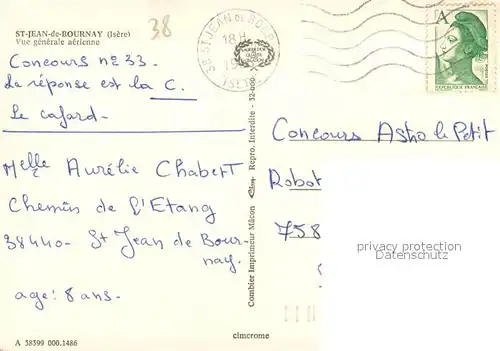 38
ST-JEAN-de-BOURNAY (Isère)
Vue générale aérienne
Concours n° 33.
La réponse est la C.
Le cafard.
Melle Aurélie Chabert
Chemin de l'Etang
38440 - St Jean de Bour-
nay.
age : 8 ans.
A 38399 000.1486
cimcrome
Combier Imprimeur Mâcon
Repro. Interdite - 32-000
38 ST-JEAN DE BOUR
18 H
ISERE
A
REPUBLIQUE FRANÇAISE
Concours Astro le Petit
Robot
758
privacy protection
Datenschutz